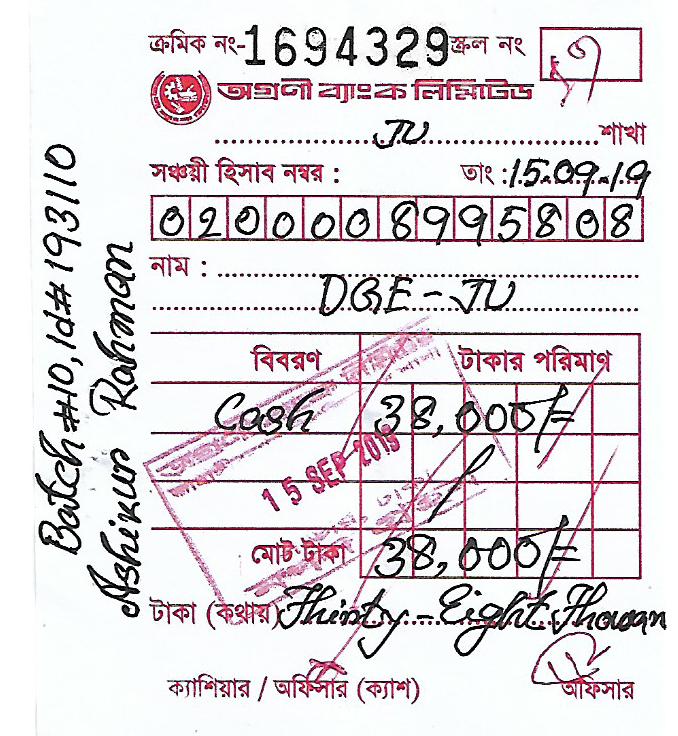 ক্রমিক নং-1694329 স্ক্রল নং
অগ্রণী ব্যাংক লিমিটেড
JU শাখা
সঞ্চয়ী হিসাব নম্বর : তাং :15.09.19
0200008995808
নাম :
DGE-JU
বিবরণ টাকার পরিমাণ
Cash 38,000/=
15 SEP 2019
মোট টাকা 38,000/=
টাকা (কথায়) Thirty-Eight Thousan
ক্যাশিয়ার / অফিসার (ক্যাশ) অফিসার
Batch #10, Id# 193110
Ashikur Rahman